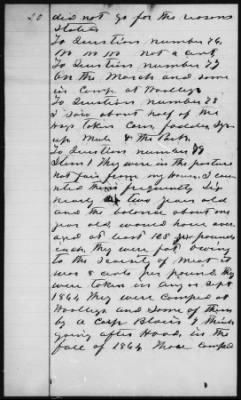 20 did not go for the reasons
Stated
To Question number 76
not a cent
To Question number 77
On the March and some
in Camp at Woolleys
To Question number 78
I saw about half of the
Hogs taken Corn fodder Syr-
up Mule & the Pork
To Question number 79
Item 1 They were in the pasture
not far from my House. I cou-
nted them frequently Six
nearly two years old
and the balance about one
year old would have over-
aged at least 125 per pounds
each they were fat owing
to the Scarcity of meat it
was 8 cents per pound. they
were taken in Aug or Sept
1864 They were camped at
Woolleys and some of them
by a Corp Blairs I think
going after Hood in the
fall of 1864 Those camped